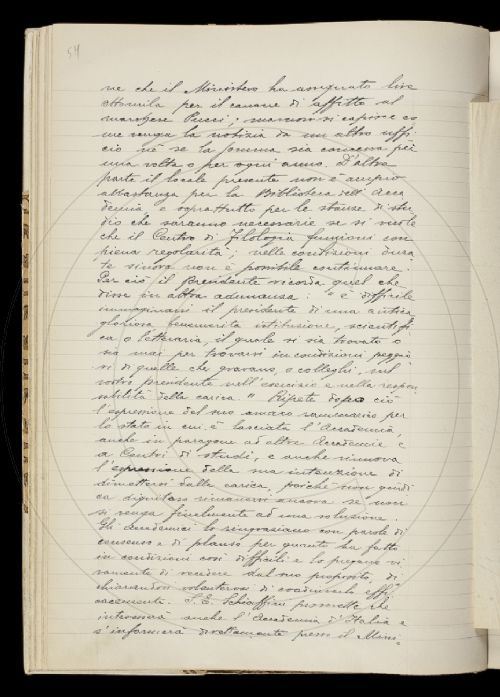 54
ne che il Ministero ha assegnato lire
ottomila per il canone di affitto al
marchese Pucci; ma non si capisce co
me venga la notizia da un altro uffi
cio nè se la somma sia concessa per
una volta o per ogni anno. D'altra
parte il locale presente non è ampio
abbastanza per la Biblioteca dell'Acca
demia e soprattutto per le stanze di stu
dio che saranno necessarie se si vuole
che il Centro di Filologia funzioni con
piena regolarità; nelle condizioni dura
te sinora non è possibile continuare.
Per ciò il Presidente ricorda quel che
disse in altra adunanza: "è difficile
immaginarsi il presidente di una antica
gloriosa benemerita istituzione, scientifi
ca o letteraria, il quale si sia trovato o
sia mai per trovarsi in condizioni peggio
ri di quelle che gravano, o colleghi, sul
vostro presidente nell'esercizio e nella respon
sabilità della carica." Ripete dopo ciò
l'espressione del suo amaro rammarico per
lo stato in cui è lasciata l'Accademia,
anche in paragone ad altre Accademie e
a Centri di studi, e anche rinnova
l'espressione della sua intenzione di
dimettersi dalla carica, poichè non giudi
ca dignitoso rimanervi ancora se non
si venga finalmente ad una soluzione.
Gli accademici lo ringraziano con parole di
consenso e di plauso per quanto ha fatto
in condizioni così difficili e lo pregano vi
vamente di recedere dal suo proposito, di
chiarandosi volenterosi di coadiuvarlo effi
cacemente. S. E. Schiaffini promette che
interesserà anche l'Accademia d'Italia e
s'informerà direttamente presso il Mini-